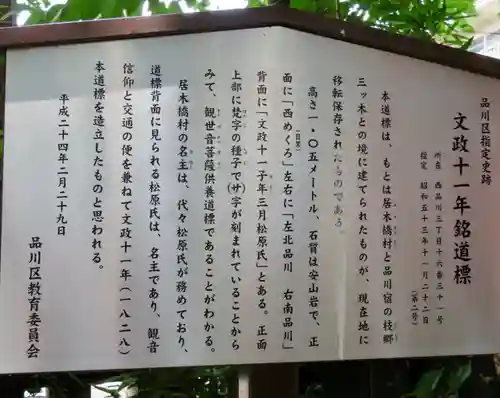 品川区指定史跡
文政十一年銘道標
所在 西品川三丁目十六番三十一号
指定 昭和五十三年十一月二十二日
(第二号)
本道標は、もとは居木橋村と品川宿の枝郷
三ッ木との境に建てられたものが、現在地に
移転保存されたものである。
高さ一・〇五メートル、石質は安山岩で、正
面に「西めくろ」左右に「左北品川 右南品川」
背面に「文政十一子年三月松原氏」とある。正面
上部に梵字の種子で(サ)字が刻まれていることから
みて、観世音菩薩供養道標であることがわかる。
居木橋村の名主は、代々松原氏が務めており、
道標背面に見られる松原氏は、名主であり、観音
信仰と交通の便を兼ねて文政十一年(一八二八)
本道標を造立したものと思われる。
平成二十四年二月二十九日
品川区教育委員会